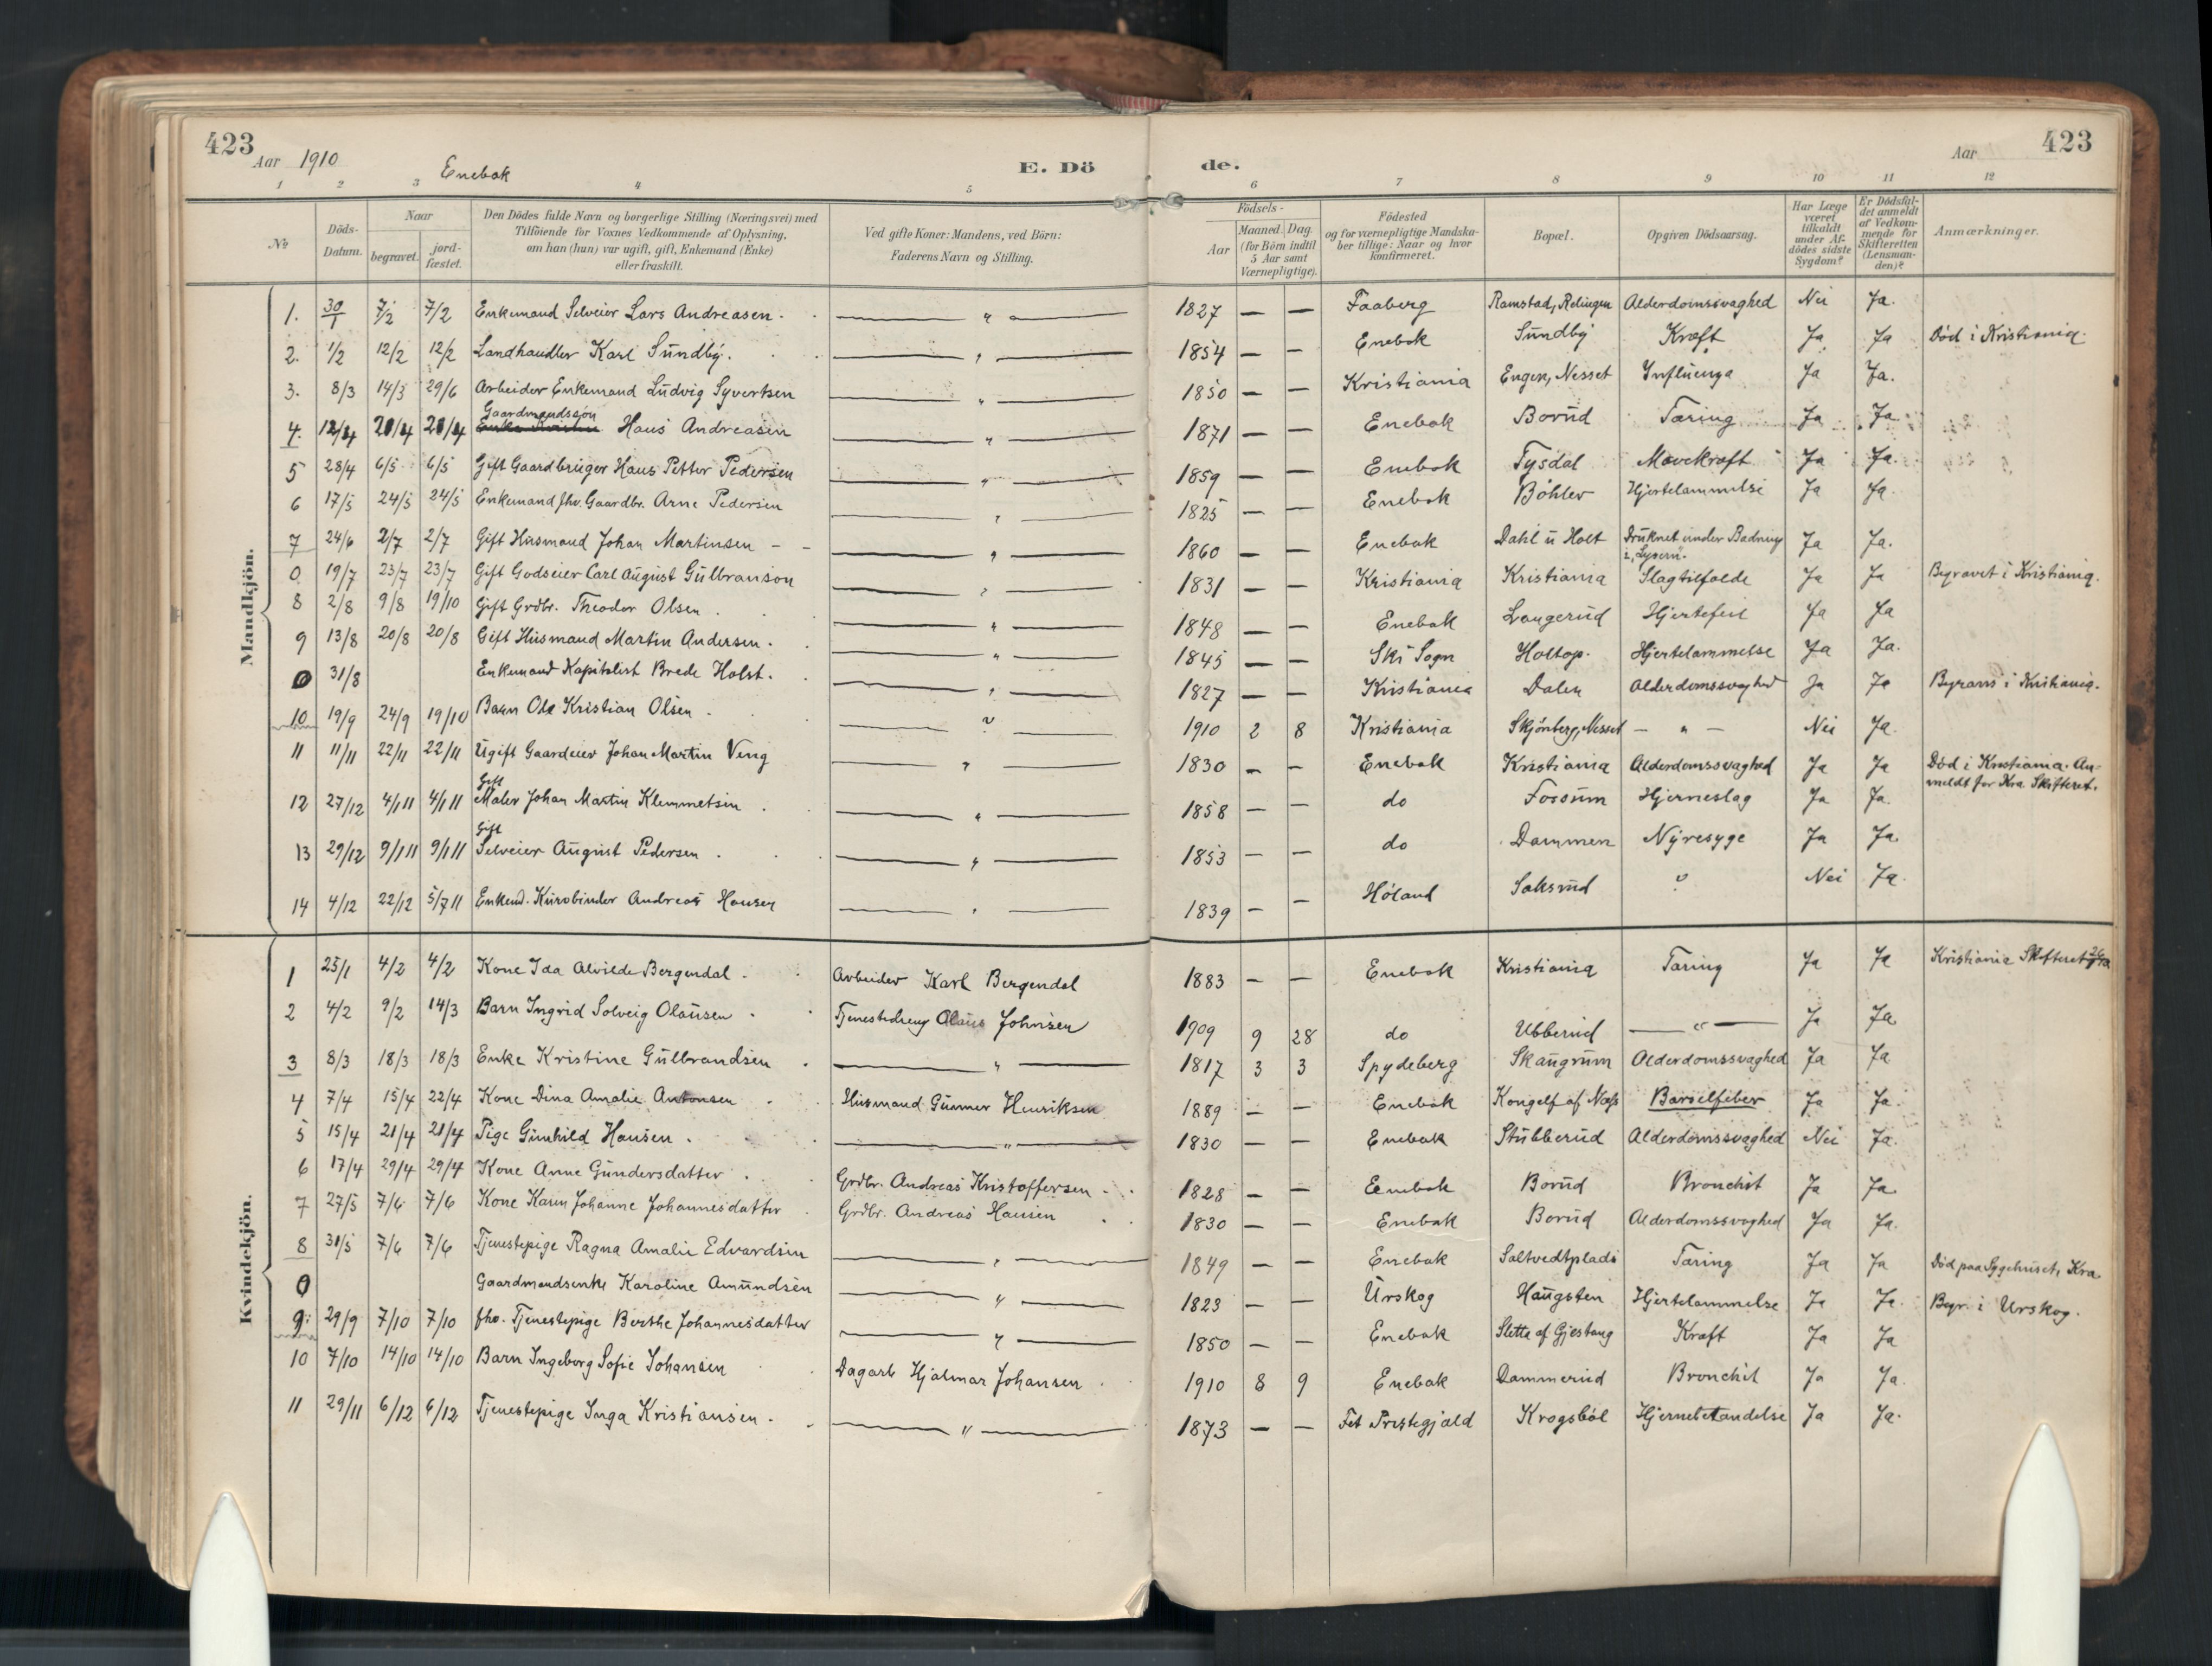 423
Aar 1910
Enebak
E. Dö
de.
Aar
423
1 2 3 4 5 6 7 8 9 10 11 12
№
Döds-Datum.
Naar
begravet.
jord-fæstet.
Den Dödes fulde Navn og borgerlige Stilling (Næringsvei) med
Tilföiende for Voxnes Vedkommende af Oplysning,
om han (hun) var ugift, gift, Enkemand (Enke)
eller fraskilt.
Ved gifte Koner: Mandens, ved Börn:
Faderens Navn og Stilling.
Födsels-
Aar
Maaned. Dag.
(for Börn indtil
5 Aar samt
Værnepligtige).
Födested
og for værnepligtige Mandska-
ber tillige: Naar og hvor
konfirmeret.
Bopæl.
Opgiven Dödsaarsag.
Har Læge
været
tilkaldt
under Af-
dödes sidste
Sygdom?
Er Dödsfal-
det anmeldt
af Vedkom-
mende for
Skifteretten
(Lensman-
den)?
Anmærkninger.
Mandkjön.
1. 30/1 7/2 7/2 Enkemand Selveier Lars Andreasen. — " — 1827 — — Faaberg Ramstad, Relingen Alderdomssvaghed Nei Ja.
2. 1/2 12/2 12/2 Landhandler Karl Sundby. — " — 1854 — — Enebak Sundby Kræft Ja Ja Död i Kristiania.
3. 8/3 14/3 29/6 Arbeider Enkemand Ludvig Syvertsen — " — 1850 — — Kristiania Engen, Nesset Influenza Ja Ja.
4. 12/4 20/4 20/4 Gaardmandssön Hans Andreasen — " — 1871 — — Enebak Borud Tæring Ja Ja
5 28/4 6/5 6/5 Gift Gaardbruger Hans Petter Pedersen — " — 1859 — — Enebak Tysdal Mavekræft Ja Ja.
6 17/5 24/5 24/5 Enkemand fhv. Gaardbr. Arne Pedersen — " — 1825 — — Enebak Böhler Hjertelammelse Ja Ja.
7 24/6 2/7 2/7 Gift Husmand Johan Martinsen — " — 1860 — — Enebak Dahl u Holt Druknet under Badning i "Lyseru". Ja Ja.
0 19/7 23/7 23/7 Gift Godseier Carl August Gulbranson — " — 1831 — — Kristiania Kristiania Slagtilfælde Ja Ja Begravet i Kristiania.
8 2/8 9/8 19/10 Gift Grdbr. Theodor Olsen. — " — 1848 — — Enebak Langerud Hjertefeil Ja Ja
9 13/8 20/8 20/8 Gift Husmand Martin Andersen. — " — 1845 — — Ski Sogn Holtop. Hjertelammelse Ja Ja.
0 31/8 Enkemand Kapitalist Brede Holst. — " — 1827 — — Kristiania Dalen Alderdomssvaghed Ja Ja Begraves i Kristiania.
10 19/9 24/9 19/10 Barn Ole Kristian Olsen — " — 1910 2 8 Kristiania Skjönberg, Nesset — " — Nei Ja.
11 11/11 22/11 22/11 Ugift Gaardeier Johan Martin Veng — " — 1830 — — Enebak Kristiania Alderdomssvaghed Ja Ja Död i Kristiania. An-
meldt for Kra Skifteret.
12 27/12 4/1 11 4/1 11 Gift Maler Johan Martin Klemmetsen — " — 1858 — — do Fossum Hjerneslag Ja Ja.
13 29/12 9/1 11 9/1 11 Gift Selveier August Pedersen — " — 1853 — — do Dammen Nyresyge Ja Ja.
14 4/12 22/12 5/7 11 Enkemd. Kurvbinder Andreas Hansen — " — 1839 — — Höland Saksrud " Nei Ja.
Kvindekjön.
1 25/1 4/2 4/2 Kone Ida Alvilde Bergendal. Arbeider Karl Bergendal 1883 — — Enebak Kristiania Tæring Ja Ja Kristiania Skifteret
2 4/2 9/2 14/3 Barn Ingrid Solveig Olausen. Tjenestedreng Olaus Johnsen 1909 9 28 do Ubberud — " — Ja Ja
3 8/3 18/3 18/3 Enke Kristine Gulbrandsen — " — 1817 3 3 Spydeberg Skaugrum Alderdomssvaghed Ja Ja
4 7/4 15/4 22/4 Kone Dina Amalie Antonsen Husmand Gunner Henriksen 1889 — — Enebak Kongelf af Næss Barselfeber Ja Ja.
5 15/4 21/4 21/4 Pige Gunhild Hansen. — " — 1830 — — Enebak Stubberud Alderdomssvaghed Nei Ja.
6 17/4 29/4 29/4 Kone Anne Gundersdatter Grdbr. Andreas Kristoffersen 1828 — — Enebak Borud Bronchit Ja Ja
7 27/5 7/6 7/6 Kone Karen Johanne Johannesdatter Grdbr. Andreas Hansen 1830 — — Enebak Borud Alderdomssvaghed Ja Ja.
8 31/5 7/6 7/6 Tjenestepige Ragna Amalie Edvardsen — " — 1849 — — Enebak Saltvedtplads Tæring Ja Ja Död paa Sygehuset, Kra
0 Gaardmandsenke Karoline Amundsen — " — 1823 — — Urskog Haugsten Hjertelammelse Ja Ja. Begr. i Urskog.
9. 29/9 7/10 7/10 fhv. Tjenestepige Berthe Johannesdatter — " — 1850 — — Enebak Sletta af Gjestang Kræft Ja Ja
10 7/10 14/10 14/10 Barn Ingeborg Sofie Johansen Dagarb Hjalmar Johansen 1910 8 9 Enebak Dammerud Bronchit Ja Ja.
11 29/11 6/12 6/12 Tjenestepige Inga Kristiansen. — " — 1873 — — Fet Prestegjæld Krogsböl Hjernebetændelse Ja Ja.